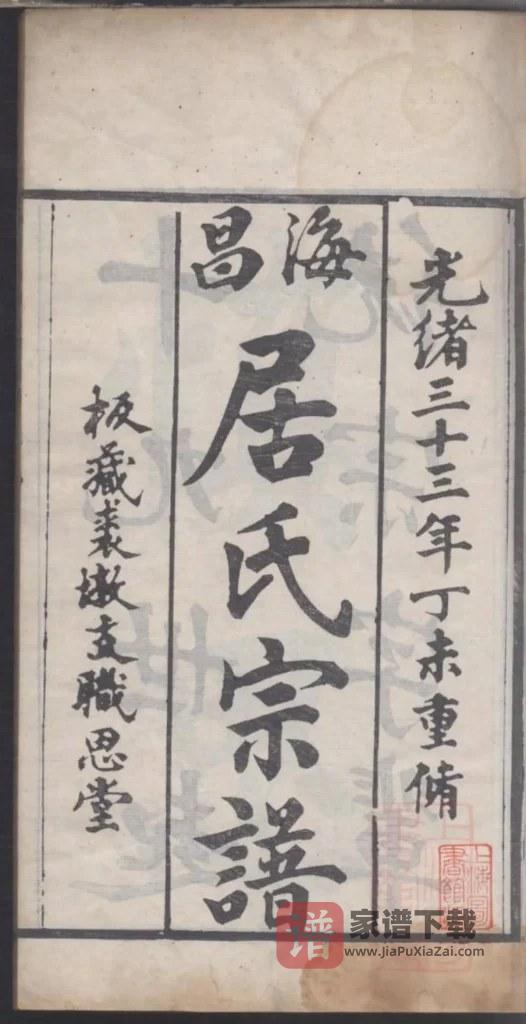 光緒三十三年丁未重脩
海昌
居氏宗譜
板藏裘墩支職思堂
譜
家谱下载
www.JiaPuXiaZai.com